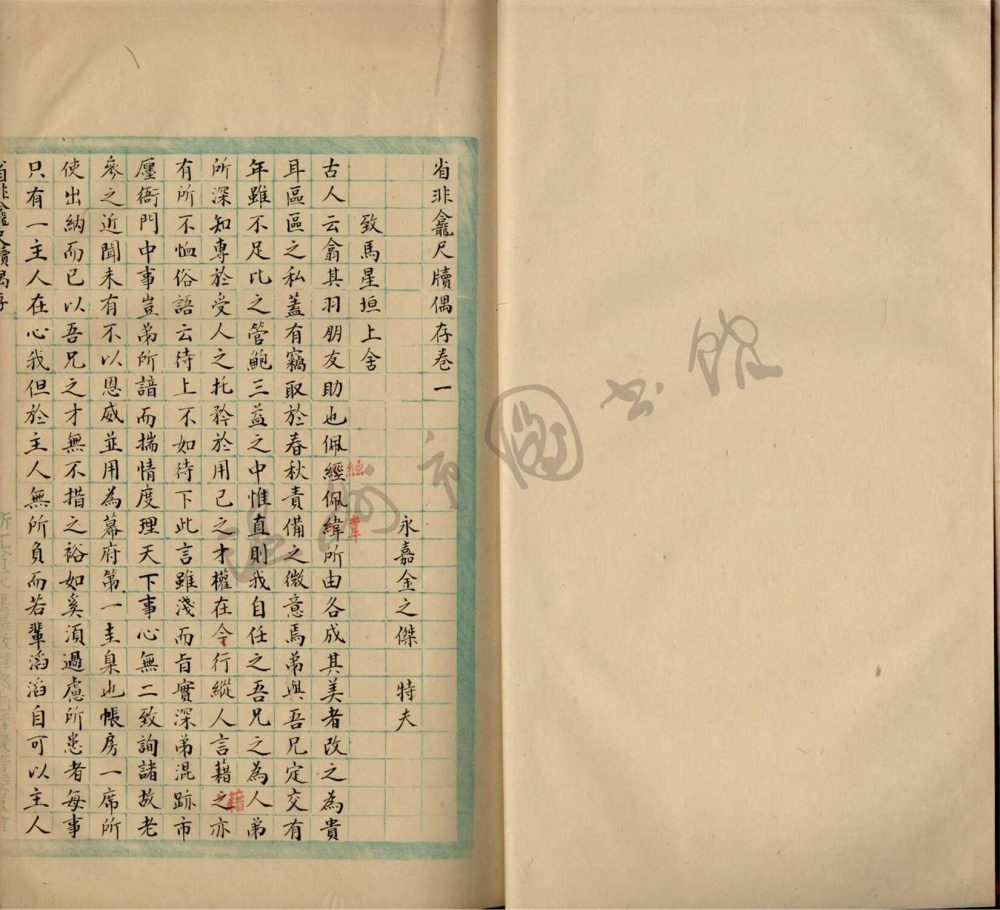 省非龕尺牘偶存卷一
永嘉金之傑 特夫
致馬星垣上舍
古人云翕其羽朋友助也佩經佩緯所由各成其美者改之為貴
絃 韋
耳區區之私蓋有竊取於春秋責備之微意焉弟與吾兄定交有
年雖不足比之管鮑三益之中惟直則我自任之吾兄之為人弟
所深知專於受人之托矜於用己之才權在令行縱人言藉之亦
藉
有所不恤俗語云待上不如待下此言雖淺而旨實深弟混跡市
廛衙門中事豈弟所諳而揣情度理天下事心無二致詢諸故老
參之近聞未有不以恩威並用為幕府第一圭臬也帳房一席所
使出納而已以吾兄之才無不措之裕如奚須過慮所患者每事
只有一主人在心我但於主人無所負而若輩滔滔自可以主人
省非龕尺牘偶存
圖書館